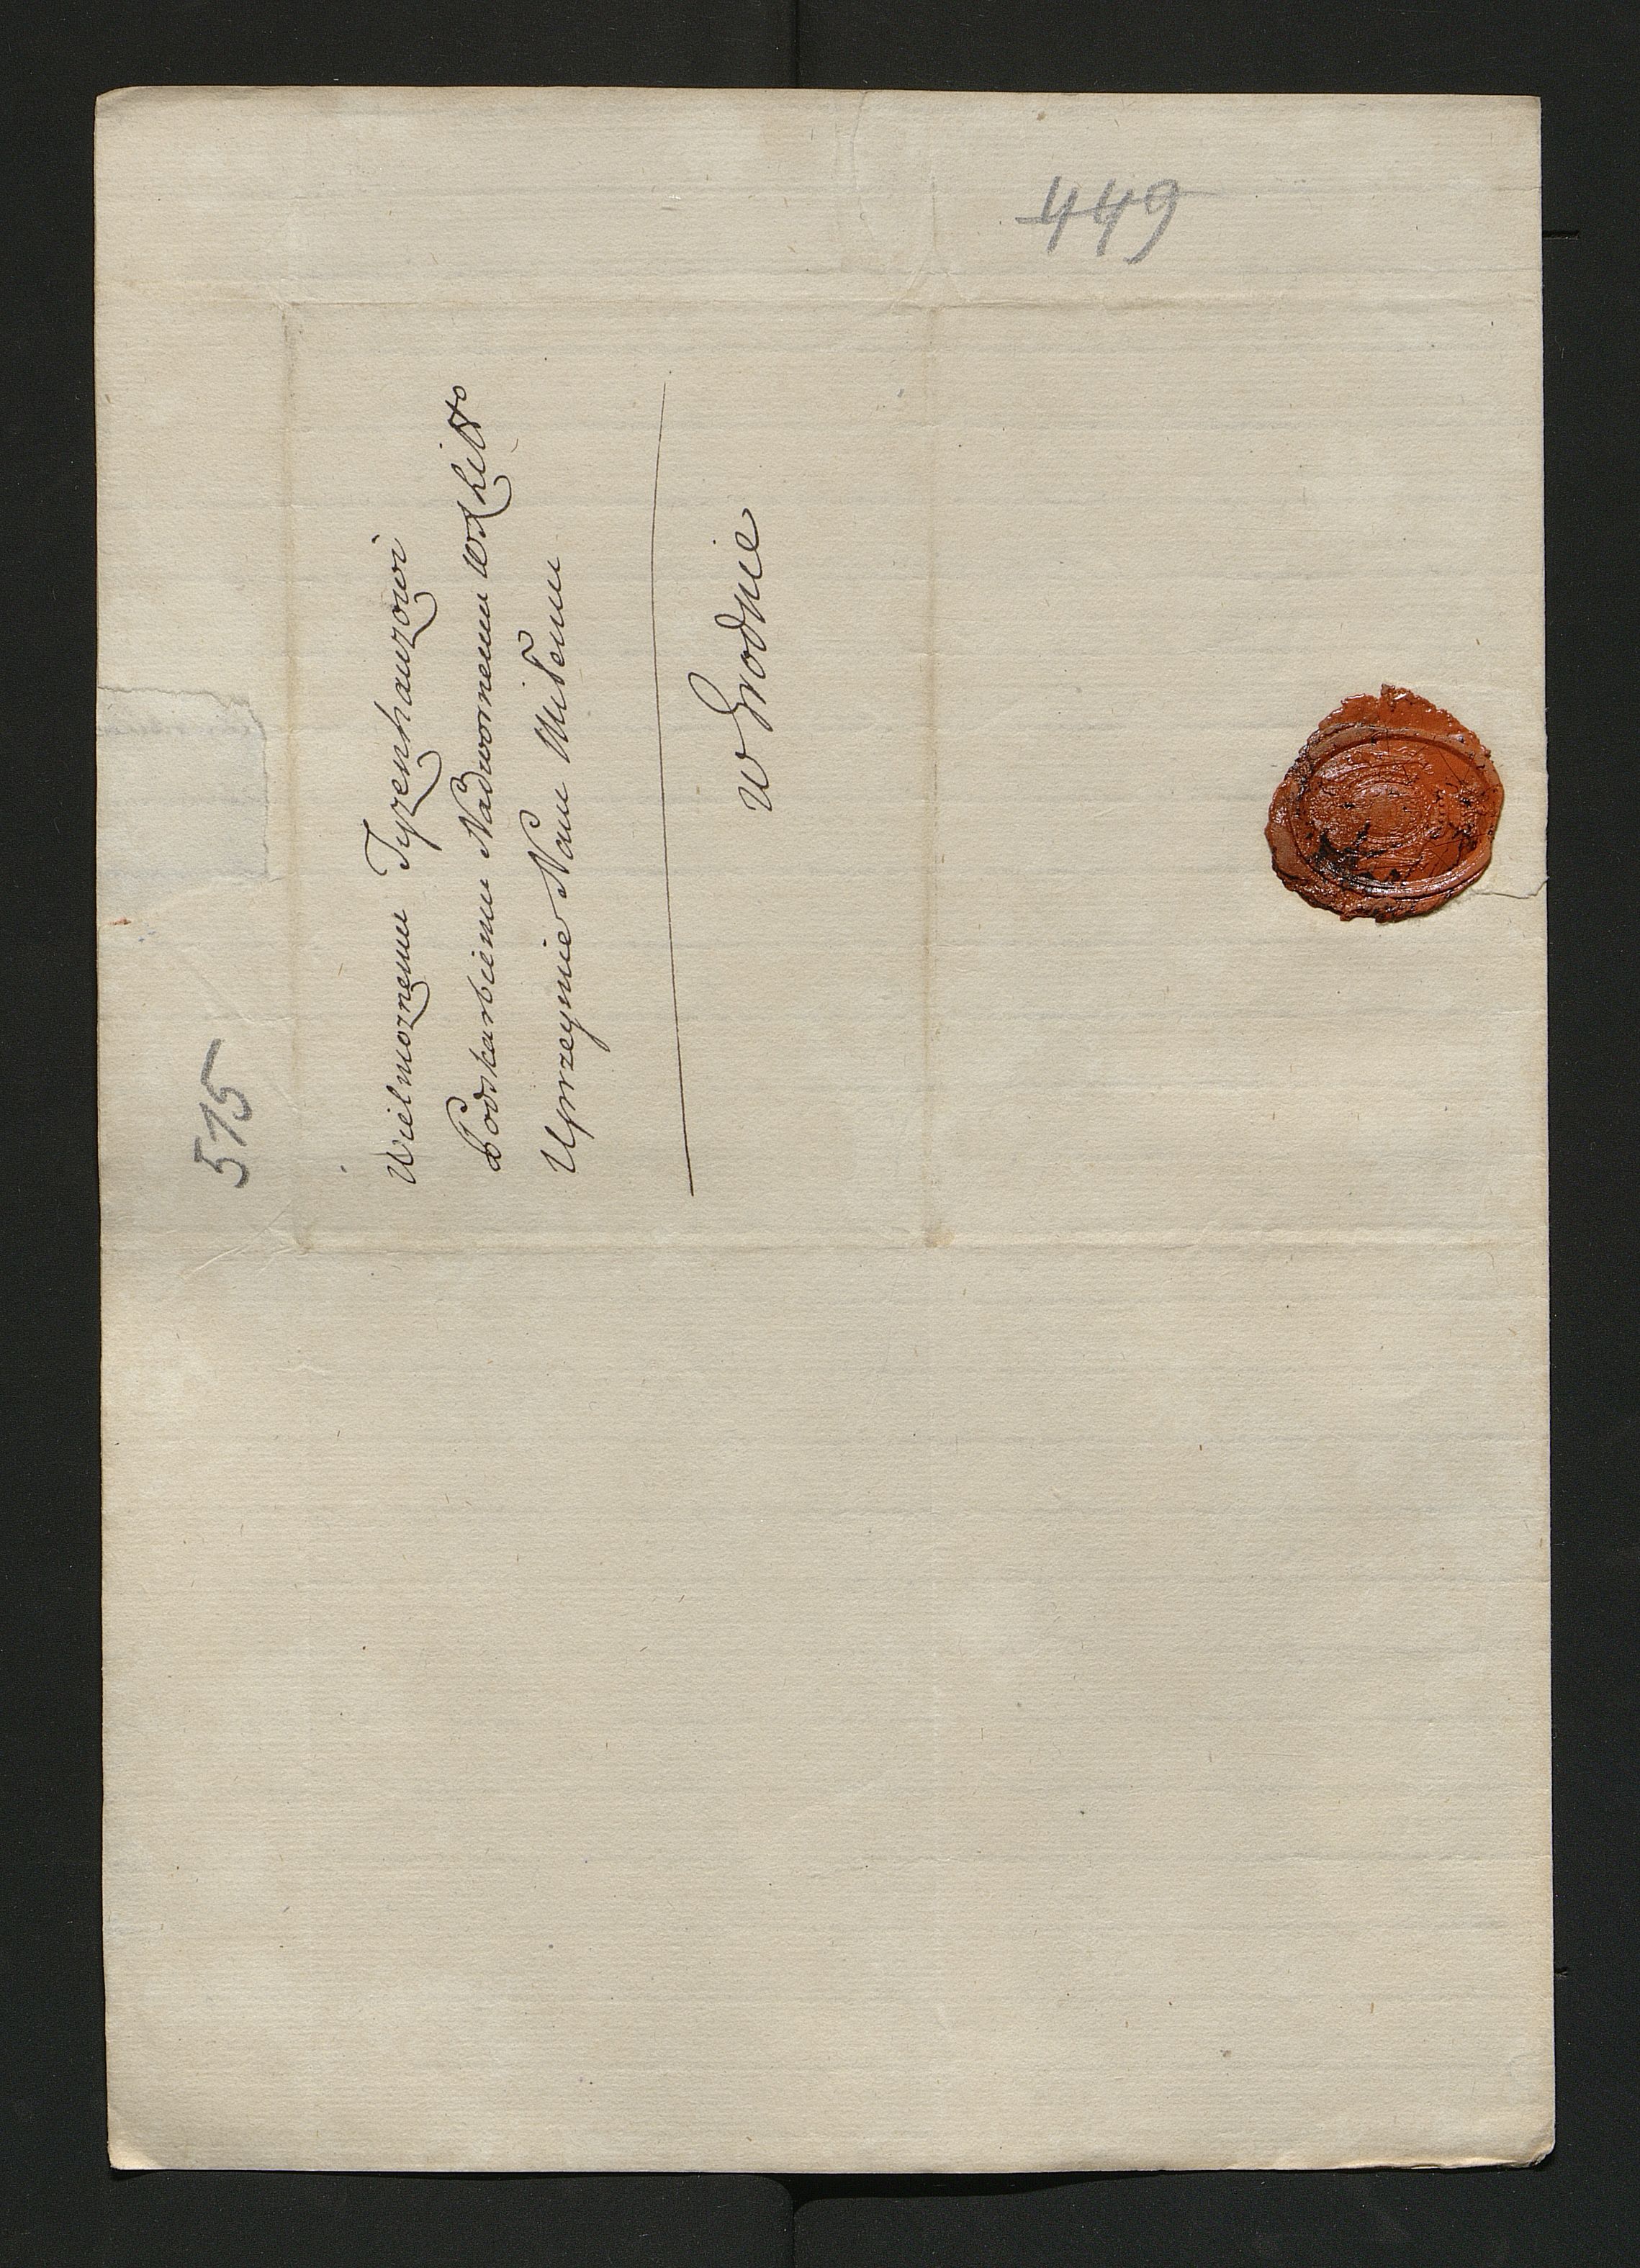 449
515
Wielmoznemu Tyzenhauzowi
Podskarbiemu Nadwornemu WXLitt°
Uprzeymie Nam Miłemu
w Grodnie